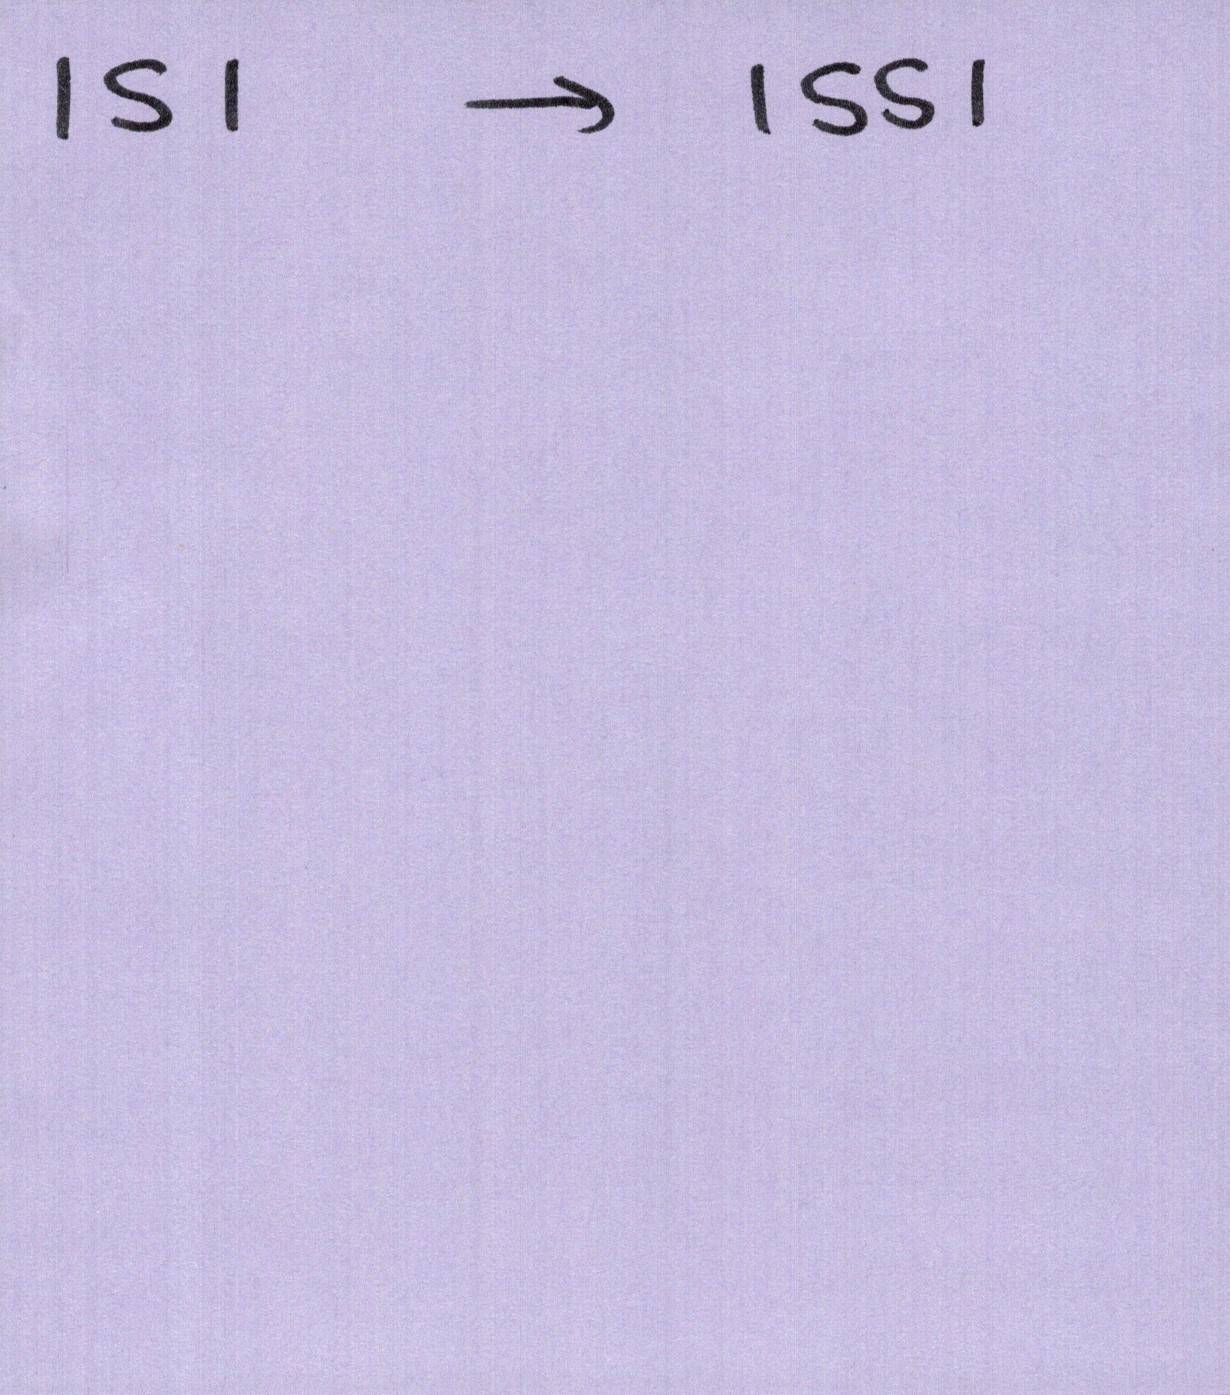 ISI → ISSI